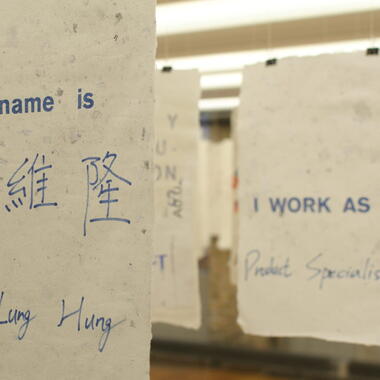 name is
維隆
Lung Hung
I WORK AS
Product Specialis